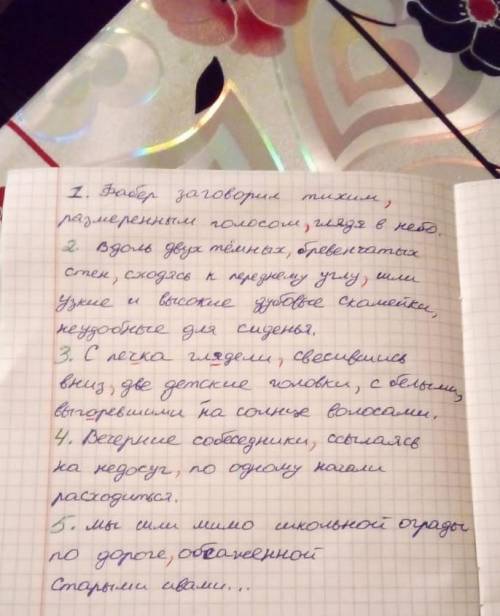 1. Бабер заговорил тихим,
размеренным голосом, глядя в небо.
2. Вдоль двух тёмных, бревенчатых
стен, сходясь к переднему углу, шли
узкие и высокие дубовые скамейки,
неудобные для сиденья.
3. С печка глядели, свесившись
вниз, две детские головки, с белыми,
выгоревшими на солнце волосами.
4. Вечерние собеседники, ссылаясь
на недосуг, по одному начали
расходиться.
5. Мы шли мимо школьной ограды
по дороге, обсаженной
старыми ивами...